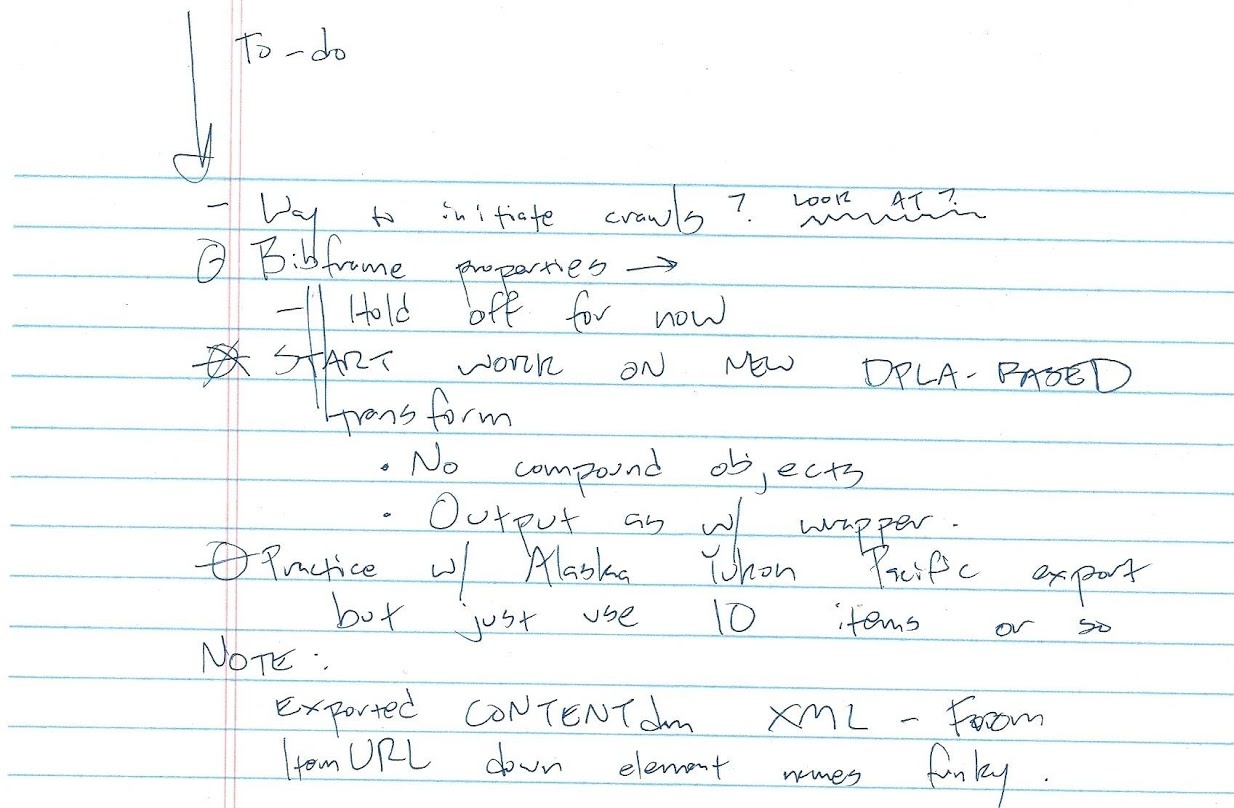 To-do
- Way to initiate crawls? LOOK AT?
Bibframe properties →
- Hold off for now
START WORK ON NEW DPLA-BASED
transform
• No compound objects
• Output as w/ wrapper.
Practice w/ Alaska Yukon Pacific export
but just use 10 items or so
NOTE:
Exported CONTENTdm XML - From
Item URL down element names funky.